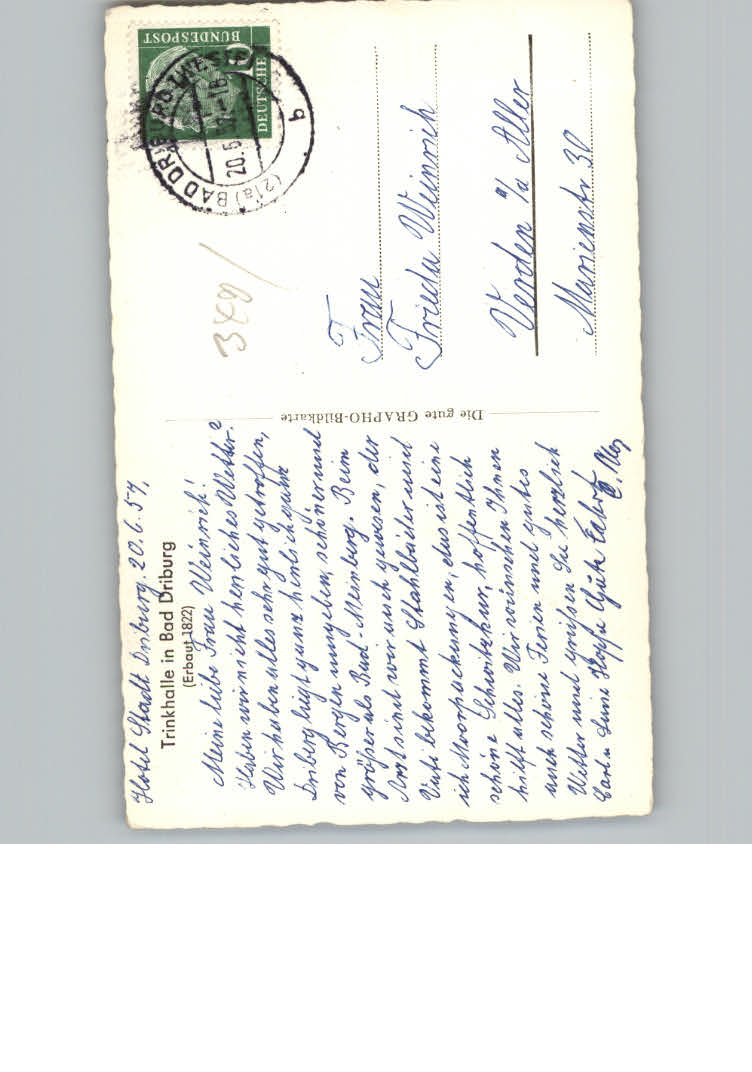 Hotel Stadt Driburg. 20.6.57.
Trinkhalle in Bad Driburg
(Erbaut 1822)
Meine liebe Frau Weinrich!
Haben wir nicht herrliches Wetter?
Wir haben alles sehr gut getroffen,
Driberg liegt ganz herrlich ganz
von Bergen umgeben, schöner und
größer als Bad-Meinberg. Beim
Arzt sind wir auch gewesen, der
Vati bekommt Stahlbäder und
ich Moorpackungen, das ist eine
schöne Schwitzkur, hoffentlich
hilft alles. Wir wünschen Ihnen
auch schöne Ferien und gutes
Wetter und grüßen Sie herzlich
Carl u
Die gute GRAPHO-Bildkarte
DEUTSCHE
BUNDESPOST
(21a) BAD DRIBURG (WESTF)
20.6.
b
348/
Frau
Frieda Weinrich
Verden a/d Aller
Marienstr 30